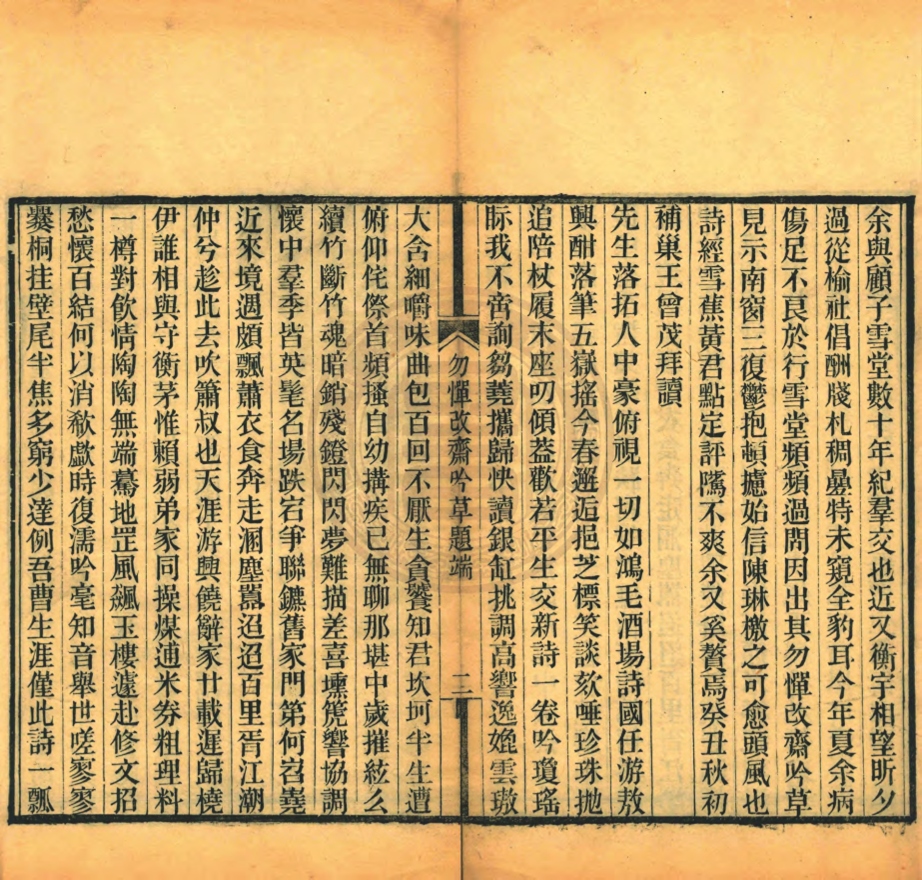 余與顧子雪堂數十年紀羣交也近又衡宇相望昕夕
過從楡社倡酬牋札稠曡特未窺全豹耳今年夏余病
傷足不良於行雪堂頻頻過問因出其勿憚改齋吟草
見示南窗三復鬱抱頓攄始信陳琳檄之可愈頭風也
詩經雪蕉黃君點定評隲不爽余又奚贅焉癸丑秋初
補巢王曾茂拜讀
先生落拓人中豪俯視一切如鴻毛酒場詩國任游敖
興酣落筆五嶽搖今春邂逅挹芝標笑談欬唾珍珠拋
追陪杖履末座叨傾蓋歡若平生交新詩一卷吟瓊瑤
眎我不啻詢芻蕘攜歸快讀銀缸挑調高響逸娩雲璈
勿憚改齋吟草題端
二
大含細嚼味曲包百回不厭生貪饕知君坎坷半生遭
俯仰侘傺首頻搔自幼搆疾已無聊那堪中歲摧絃么
續竹斷竹魂暗銷殘鐙閃閃夢難描差喜壎箎響協調
懷中羣季皆英髦名場跌宕爭聯鑣舊家門第何岧嶤
近來境遇頗飄蕭衣食奔走溷塵囂迢迢百里胥江潮
仲兮趁此去吹簫叔也天涯游興饒辭家廿載遲歸橈
伊誰相與守衡茅惟賴弱弟家同操煤逋米劵粗理料
一樽對飮情陶陶無端驀地罡風飆玉樓遽赴修文招
愁懷百結何以消欷歔時復濡吟毫知音舉世嗟寥寥
爨桐挂壁尾半焦多窮少達例吾曹生涯僅此詩一瓢